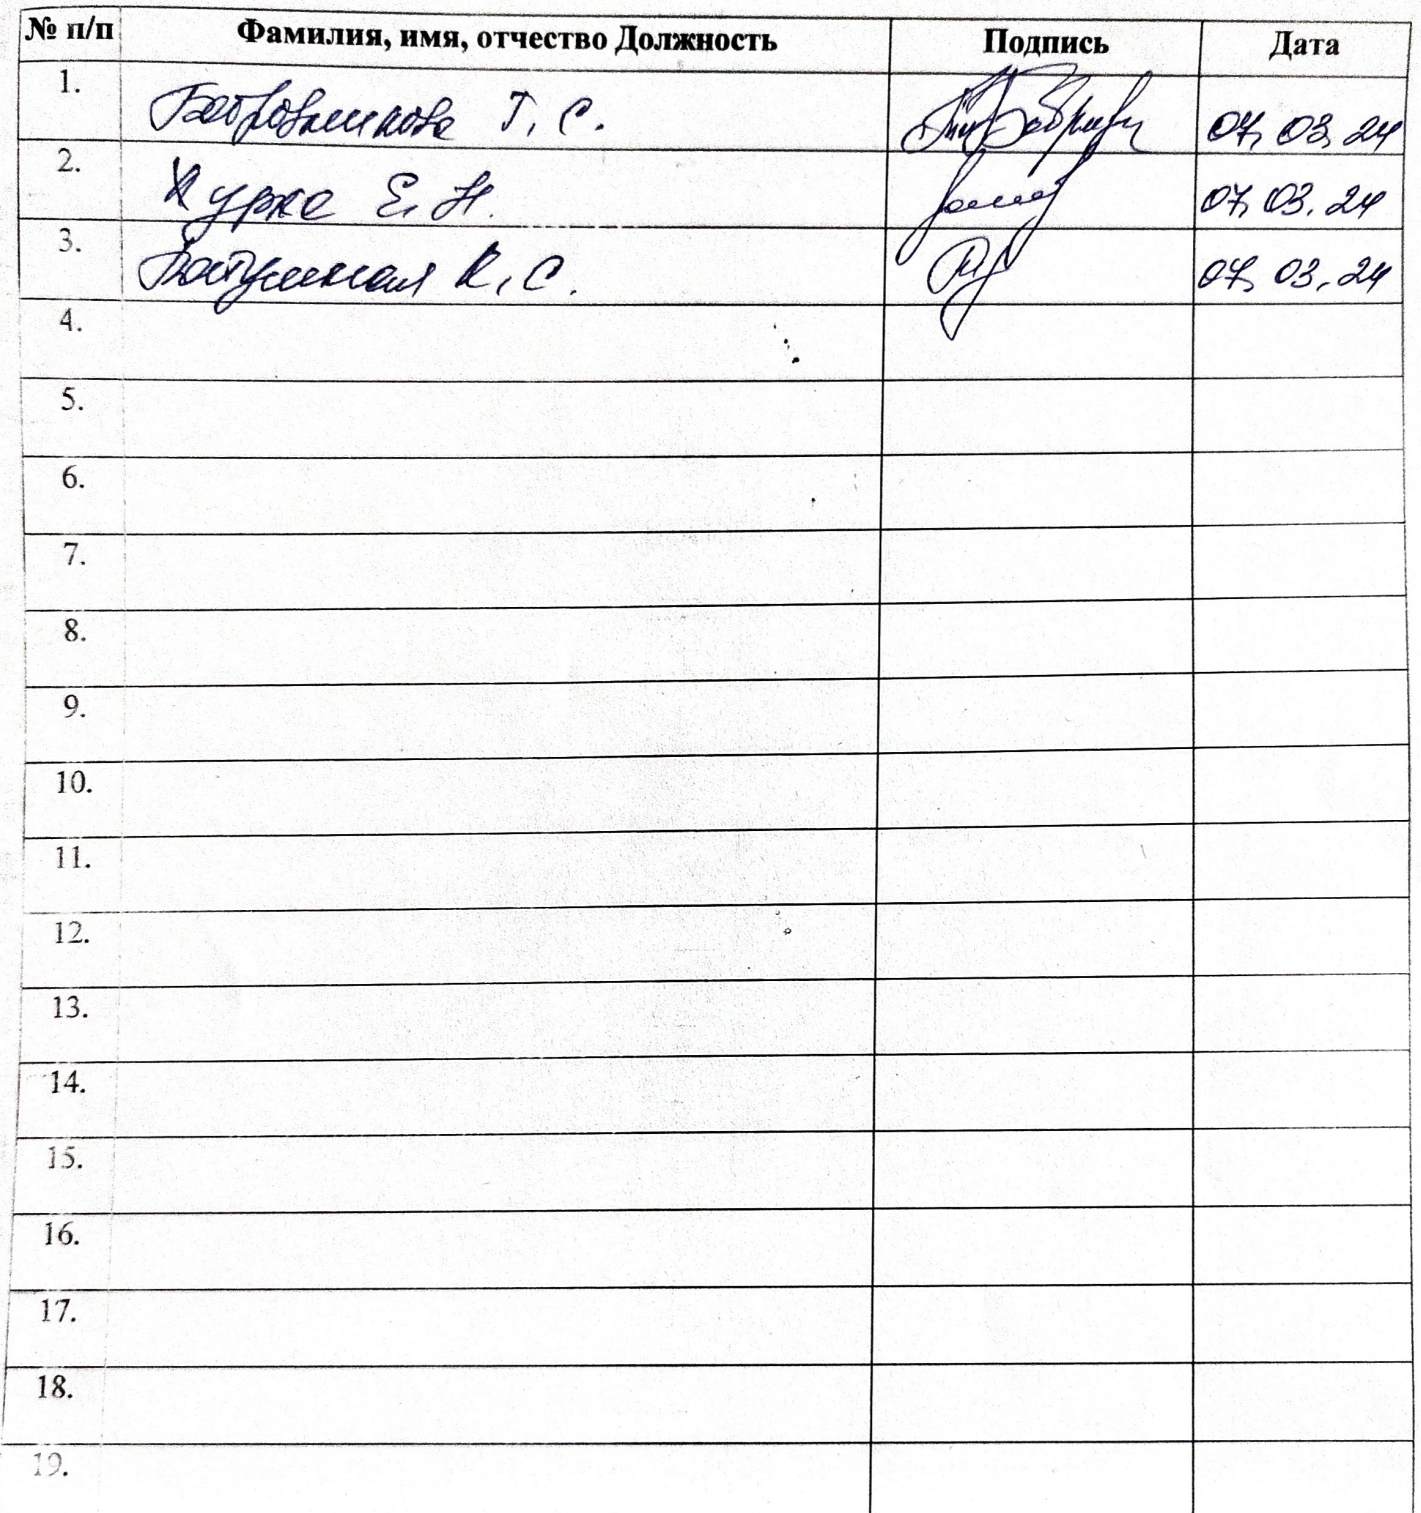 № п/п Фамилия, имя, отчество Должность Подпись Дата
1. Бобровникова Т. С. 07.03.24
2. Е. Н. 07.03.24
3. К. С. 07.03.24
4.
5.
6.
7.
8.
9.
10.
11.
12.
13.
14.
15.
16.
17.
18.
19.